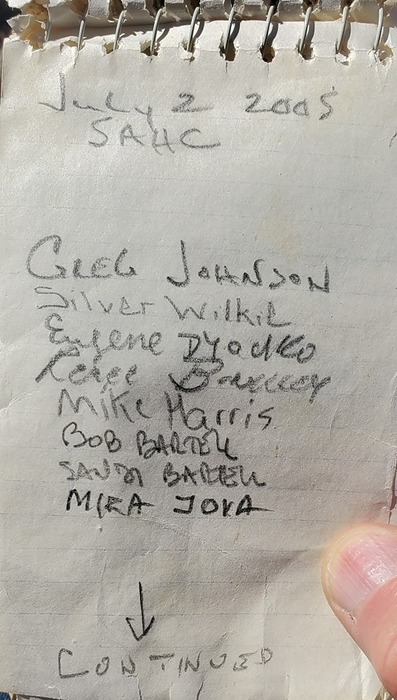 July 2 2005
SAHC
GREG JOHNSON
Silver Wilkie
Eugene Dyadko
Mike Harris
BOB BARTELL
SANDI BARTELL
MIRA JOVA
CONTINUED